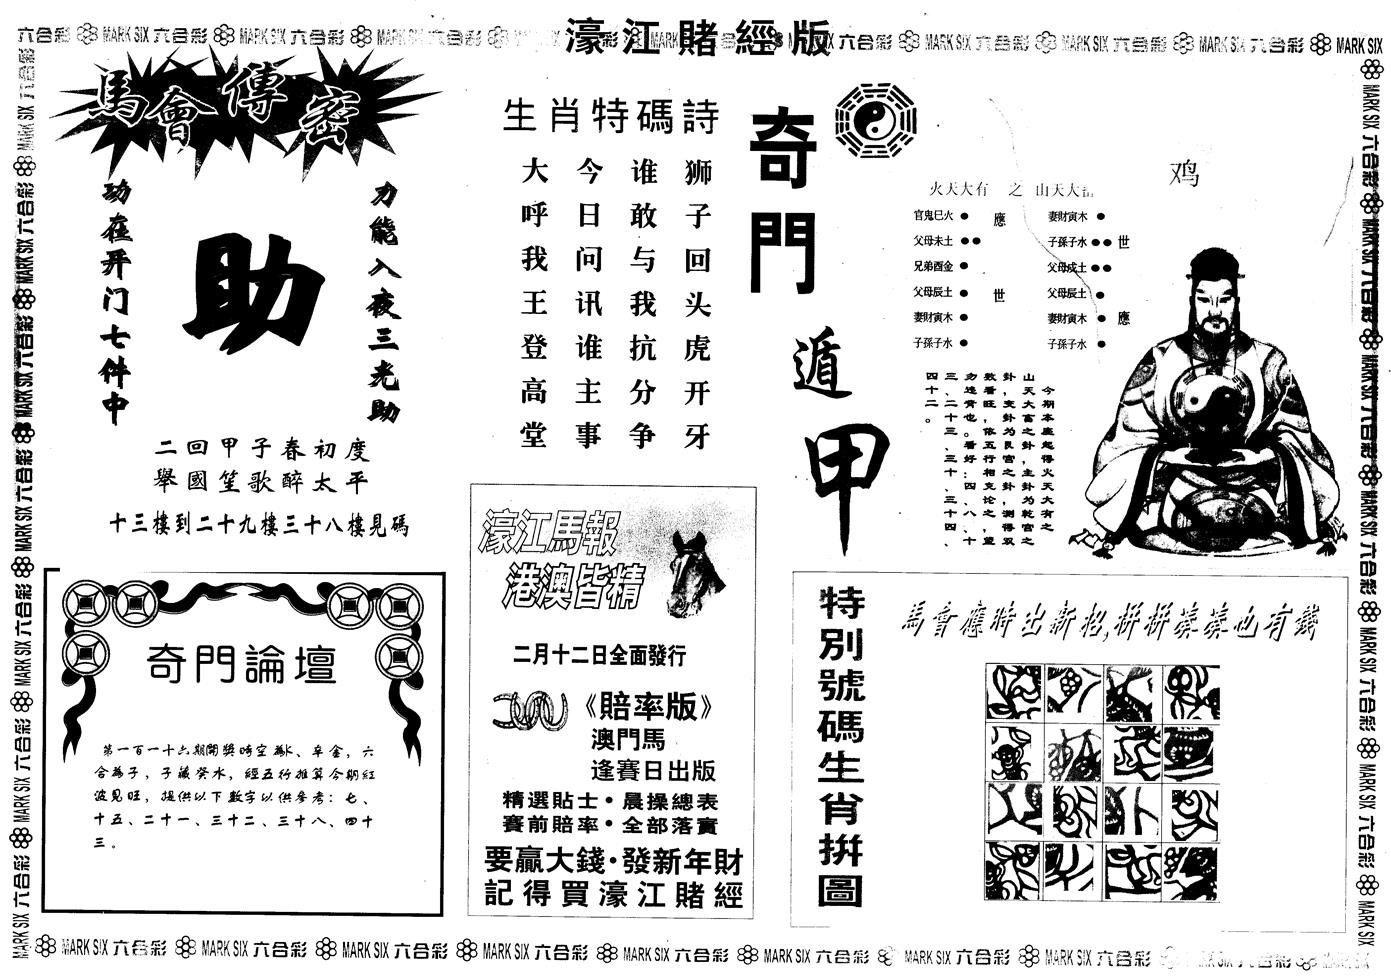 濠江賭經版
六合彩 MARK SIX 六合彩 MARK SIX 六合彩 MARK SIX 六合彩 MARK SIX 六合彩 MARK SIX
馬會傳密
力能入夜三光助
助
功在开门七件中
二回甲子春初度
舉國笙歌醉太平
十三樓到二十九樓三十八樓見碼
生肖特碼詩
狮子回头虎开牙
谁敢与我抗分争
今日问讯谁主事
大呼我王登高堂
奇門遁甲
鸡
火天大有 之 山天大畜
官鬼巳火 ● 應 妻財寅木 ●
父母未土 ●● 子孫子水 ●● 世
兄弟酉金 ● 父母戍土 ●●
父母辰土 ● 世 父母辰土 ●
妻財寅木 ● 妻財寅木 ● 應
子孫子水 ● 子孫子水 ●
今期本座起得火天大有之
山天大富之卦，主卦为乾宫之
卦，变卦为艮宫之卦，测得双
数看旺，依五行相克论之，望
勿违背也。看好：四、八、十
三、二十三、三十、三十四、
四十二。
奇門論壇
第一百一十六期開獎時空為K、辛金，六
合為子，子藏癸水，經五行推算今期紅
波見旺，提供以下數字以供參考：七、
十五、二十一、三十二、三十八、四十
三。
濠江馬報
港澳皆精
二月十二日全面發行
《賠率版》
澳門馬
逢賽日出版
精選貼士·晨操總表
賽前賠率·全部落實
要贏大錢·發新年財
記得買濠江賭經
特別號碼生肖拼圖
馬會應時出新招,拼拼湊湊也有錢
MARK SIX 六合彩 MARK SIX 六合彩 MARK SIX 六合彩 MARK SIX 六合彩 MARK SIX 六合彩